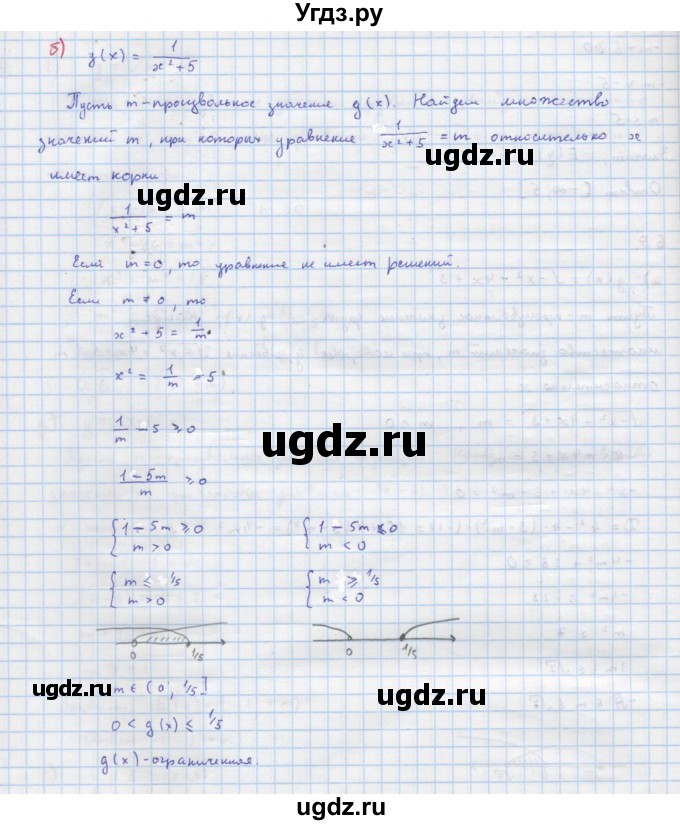 Угдз.ру
б) g(x) = 1/(x²+5)
Пусть m - произвольное значение g(x). Найдем множество
значений m, при которых уравнение 1/(x²+5) = m относительно x
имеет корни
1/(x²+5) = m
Если m = 0, то уравнение не имеет решений.
Если m ≠ 0, то
x² + 5 = 1/m
x² = 1/m - 5
1/m - 5 ⩾ 0
ugdz.ru
(1-5m)/m ⩾ 0
{ 1 - 5m ⩾ 0 { 1 - 5m ⩽ 0
m > 0 m < 0
{ m ⩽ 1/5 { m ⩾ 1/5
m > 0 m < 0
0 1/5 0 1/5
ugdz.ru
m ∈ (0; 1/5]
ugdz.ru
0 < g(x) ⩽ 1/5
g(x) - ограниченная.
ugdz.ru